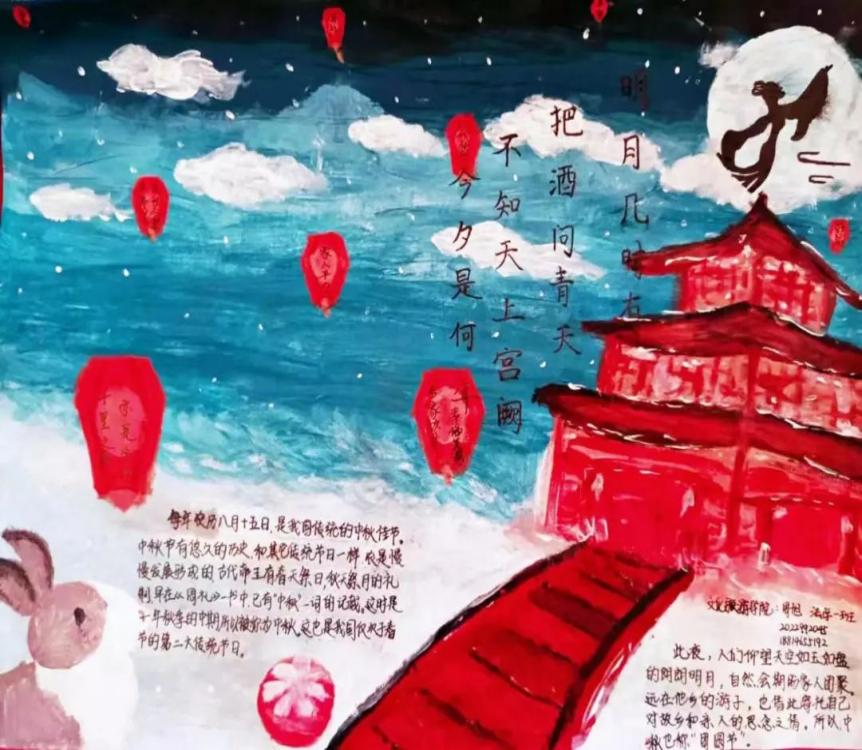 明月几时有
把酒问青天
不知天上宫阙
今夕是何
每年农历八月十五日,是我国传统的中秋佳节。
中秋节有悠久的历史,和其它传统节日一样,也是慢
慢发展形成的,古代帝王有春天祭日,秋天祭月的礼
制,早在《周礼》一书中,已有“中秋”一词的记载。这时是
一年秋季的中期,所以被称为中秋,这也是我国仅次于春
节的第二大传统节日。
20229920
此夜,人们仰望天空如玉如盘
的朗朗明月,自然会期盼家人团聚。
远在他乡的游子,也借此寄托自己
对故乡和亲人的思念之情。所以,中
秋也称“团圆节”。